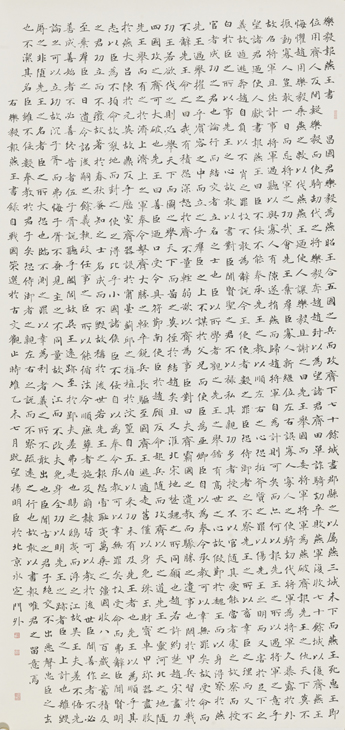 樂毅報燕王書　昌國君樂毅為燕昭王合五國之兵而攻齊下七十餘城盡郡縣之以屬燕三城未下而燕昭王死惠王即
位用齊人反間疑樂毅而使騎劫代之將樂毅奔趙趙封以為望諸君齊田單詐騎劫卒敗燕軍復收七十餘城以復齊燕王
悔懼趙用樂毅乘燕之敝以伐燕燕王乃使人讓樂毅且謝之曰先王舉國而委將軍將軍為燕破齊報先王之讎天下莫不
振動寡人豈敢一日而忘將軍之功哉會先王棄群臣寡人新即位左右誤寡人寡人之使騎劫代將軍為將軍久暴露於外
故召將軍且休計事將軍過聽以與寡人有隙遂捐燕而歸趙將軍自為計則可矣而亦何以報先王之所以遇將軍之意乎
望諸君乃使人獻書報燕王曰臣不佞不能奉承先王之教以順左右之心恐抵斧質之罪以傷先王之明而又害於足下之
義故遁逃奔趙自負以不肖之罪故不敢為辭說今王使使者數之罪臣恐侍御者之不察先王之所以畜幸臣之理而又不
白於臣之所以事先王之心故敢以書對臣聞賢聖之君不以祿私其親功多者授之不以官隨其愛能當者處之故察能而授
官者成功之君也論行而結交者立名之士也臣以所學者觀之先王之舉錯有高世之心故假節於魏王而以身得察於燕
先王過舉擢之乎賓客之中而立之乎群臣之上不謀於父兄而使臣為亞卿臣自以為奉令承教可以幸無罪矣故受命而
不辭先王命之曰我有積怨深怒於齊不量輕弱而欲以齊為事臣對曰夫齊霸國之餘教而驟勝之遺事也閑於甲兵習於戰
攻王若欲伐之則必舉天下而圖之舉天下而圖之莫徑於結趙矣且又淮北宋地楚魏之所同願也趙若許約楚趙宋盡力
先王舉而有之於濟上濟上之軍奉令擊齊大勝之輕卒銳兵長驅至國齊王逃遁走莒僅以身免珠玉財寶車甲珍器盡收入
於燕大呂陳於元英故鼎反乎歷室齊器設於寧臺薊丘之植植於汶篁自五伯以來功未有及先王者也先王以為順于其
志以臣為不頓命故裂地而封之使之得比乎小國諸侯臣不佞自以為奉令承教可以幸無罪矣故受命而弗辭臣聞賢明
之君功立而不廢故著於春秋蚤知之士名成而不毀故稱於後世若先王之報怨雪恥夷萬乘之強國收八百歲之蓄積及
至棄群臣之日遺令詔後嗣之餘義執政任事之臣所以能循法令順庶孽者施及萌隸皆可以教於後世臣聞善作者不必
善成善始者不必善終昔者伍子胥說聽乎闔閭故吳王遠跡至於郢夫差弗是也賜之鴟夷而浮之江故吳王夫差不悟先
論之可以立功故沉子胥而弗悔子胥不蚤見主之不同量故入江而不改夫免身全功以明先王之跡者臣之上計也離毀
辱之非墮先王之名者臣之所大恐也臨不測之罪以幸為利者義之所不敢出也臣聞古之君子交絕不出惡聲忠臣之去
也不潔其名臣雖不佞數奉教於君子矣恐侍御者之親左右之說而不察疏遠之行也故敢以書報唯君之留意焉
右樂毅報燕王書錄自戰國策選於古文觀止時維乙未七月既望揚明臣於北京永定門外